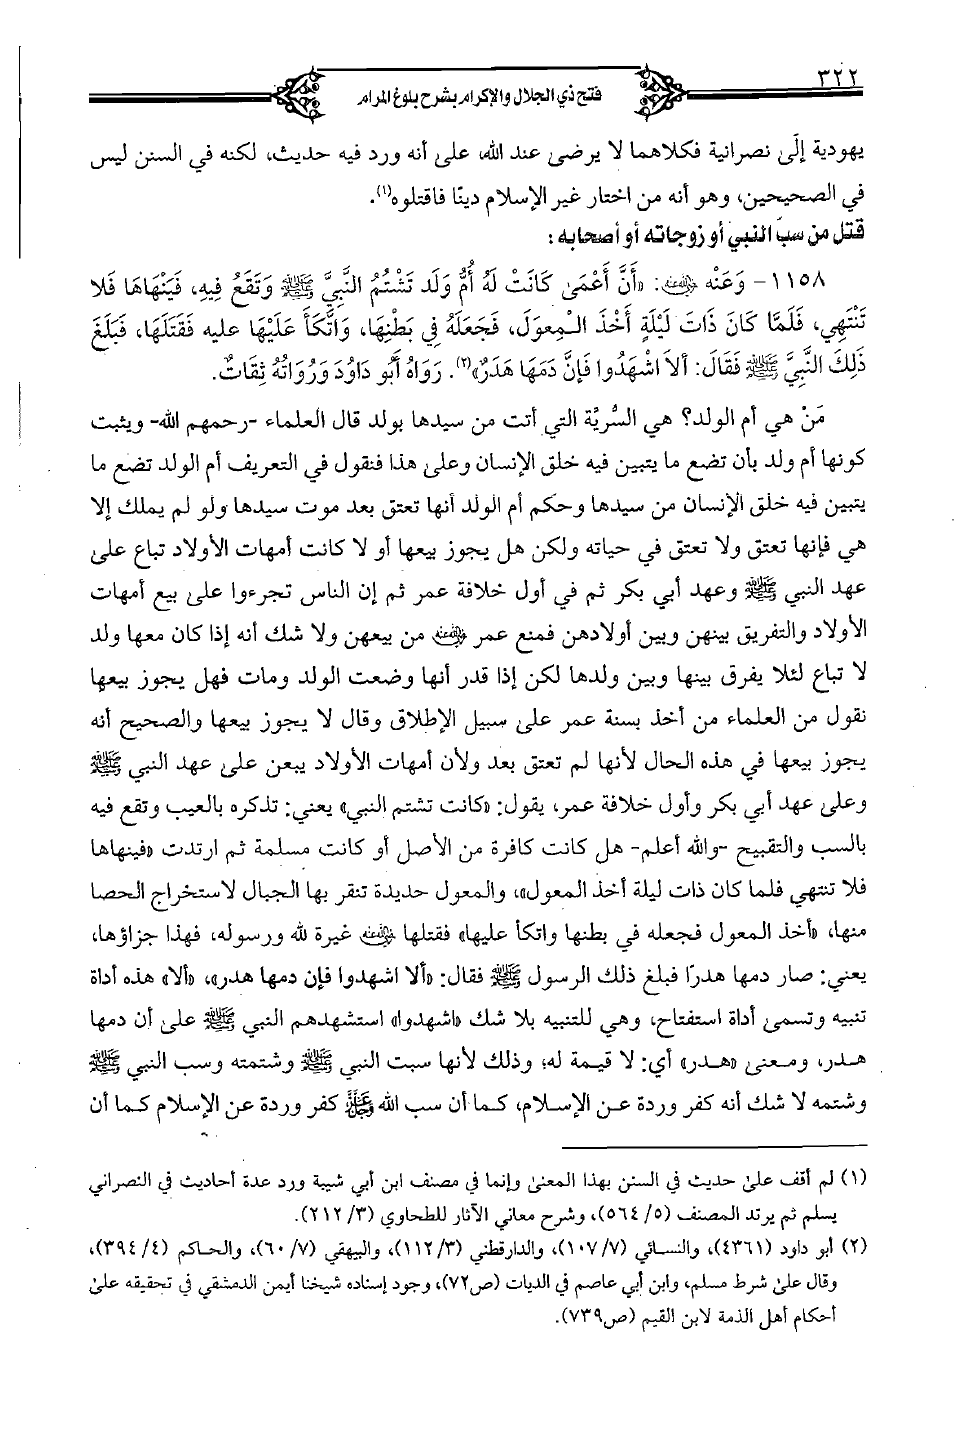 ٣٢٢
فتح ذي الجلال والإكرام بشرح بلوغ المرام
يهودية إلَى نصرانية فكلاهما لا يرضى عند الله، على أنه ورد فيه حديث، لكنه في السنن ليس
في الصحيحين، وهو أنه من اختار غير الإسلام دينًا فاقتلوه(١).
قتل من سبَّ النبي أو زوجاته أو أصحابه:
١١٥٨- وَعَنْهُ رضي الله عنه: «أَنَّ أَعْمَى كَانَتْ لَهُ أُمُّ وَلَد تَشْتُمُ النَّبِيَّ ﷺ وَتَقَعُ فِيهِ، فَيَنْهَاهَا فَلا
تَنْتَهِي، فَلَمَّا كَانَ ذَاتَ لَيْلَةٍ أَخْذَ الْـمِعوَلَ، فَجَعَلَهُ فِي بَطْنِهَا، وَاتَّكَأَ عَلَيْهَا عليه فَقَتَلَهَا، فَبَلَغَ
ذَلِكَ النَّبِيَّ ﷺ فَقَالَ: أَلاَ اشْهَدُوا فَإنَّ دَمَهَا هَدَرٌ»(٢). رَوَاهُ أَبُو دَاوُدَ وَرُوَاتُهُ ثِقَاتٌ.
مَنْ هي أم الولد؟ هي السُّريَّة التي أتت من سيدها بولد قال العلماء -رحمهم الله- ويثبت
كونها أم ولد بأن تضع ما يتبين فيه خلق الإنسان وعلى هذا فنقول في التعريف أم الولد تضع ما
يتبين فيه خلق الإنسان من سيدها وحكم أم الولد أنها تعتق بعد موت سيدها ولو لم يملك إلا
هي فإنها تعتق ولا تعتق في حياته ولكن هل يجوز بيعها أو لا كانت أمهات الأولاد تباع على
عهد النبي ﷺ وعهد أبي بكر ثم في أول خلافة عمر ثم إن الناس تجرءوا على بيع أمهات
الأولاد والتفريق بينهن وبين أولادهن فمنع عمر رضي الله عنه من بيعهن ولا شك أنه إذا كان معها ولد
لا تباع لئلا يفرق بينها وبين ولدها لكن إذا قدر أنها وضعت الولد ومات فهل يجوز بيعها
نقول من العلماء من أخذ بسنة عمر على سبيل الإطلاق وقال لا يجوز بيعها والصحيح أنه
يجوز بيعها في هذه الحال لأنها لم تعتق بعد ولأن أمهات الأولاد يبعن على عهد النبي ﷺ
وعلى عهد أبي بكر وأول خلافة عمر، يقول: «كانت تشتم النبي» يعني: تذكره بالعيب وتقع فيه
بالسب والتقبيح -والله أعلم- هل كانت كافرة من الأصل أو كانت مسلمة ثم ارتدت «فينهاها
فلا تنتهي فلما كان ذات ليلة أخذ المعول»، والمعول حديدة تنقر بها الجبال لاستخراج الحصا
منها، «أخذ المعول فجعله في بطنها واتكأ عليها» فقتلها رضي الله عنه غيرة لله ورسوله، فهذا جزاؤها،
يعني: صار دمها هدرًا فبلغ ذلك الرسول ﷺ فقال: «ألا اشهدوا فإن دمها هدر»، «ألا» هذه أداة
تنبيه وتسمى أداة استفتاح، وهي للتنبيه بلا شك «اشهدوا» استشهدهم النبي ﷺ على أن دمها
هـدر، ومـعنى «هـدر» أي: لا قيمة له؛ وذلك لأنها سبت النبي ﷺ وشتمته وسب النبي ﷺ
وشتمه لا شك أنه كفر وردة عـن الإسـلام، كـما أن سب الله عز وجل كفر وردة عن الإسلام كـما أن
(١) لم أقف على حديث في السنن بهذا المعنى وإنما في مصنف ابن أبي شيبة ورد عدة أحاديث في النصراني
يسلم ثم يرتد المصنف (٥/ ٥٦٤)، وشرح معاني الآثار للطحاوي (٣/ ٢١٢).
(٢) أبو داود (٤٣٦١)، والنسائي (٧/ ١٠٧)، والدارقطني (٣/ ١١٢)، والبيهقي (٧/ ٦٠)، والحاكم (٤/ ٣٩٤)،
وقال على شرط مسلم، وابن أبي عاصم في الديات (ص٧٢)، وجود إسناده شيخنا أيمن الدمشقي في تحقيقه على
أحكام أهل الذمة لابن القيم (ص٧٣٩).